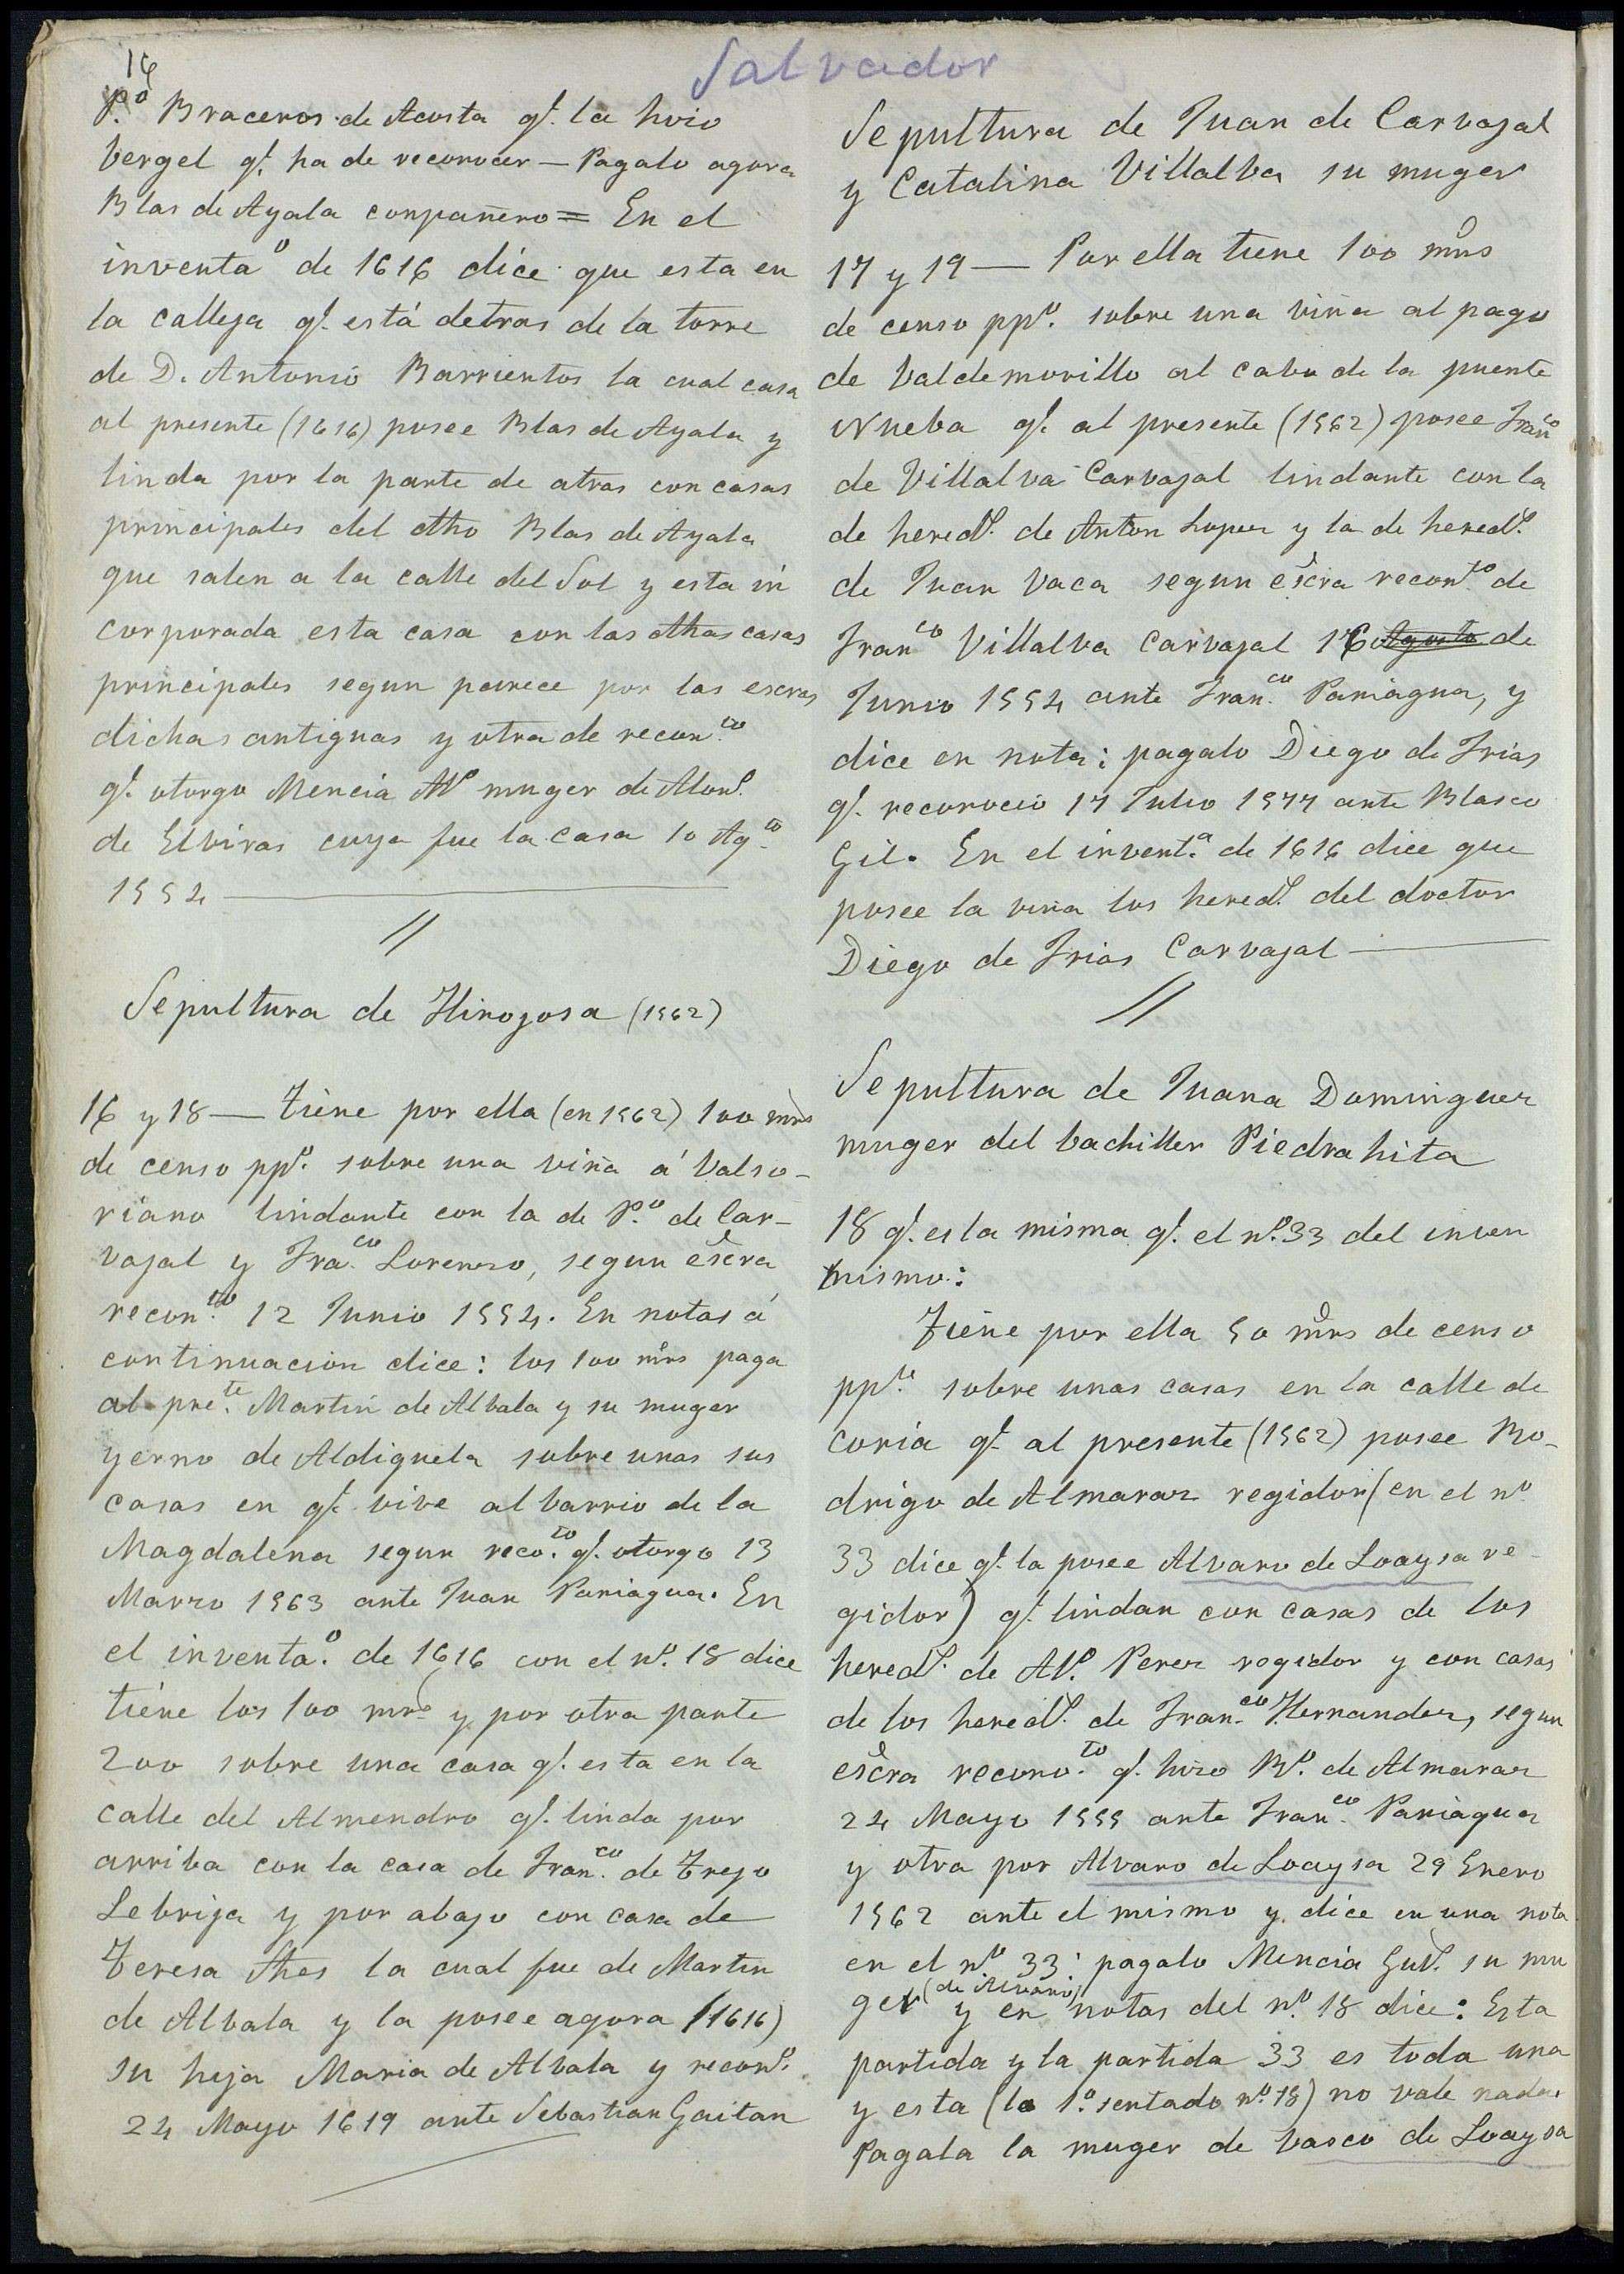 Salvador
16
P.º Braceros de Acosta q.e la hvio
Vergel q.e ha de reconocer — Pagalo agora
Blas de Ayala conpañero = En el
inventaº de 1616 dice que esta en
la calleja q.e está detras de la torre
de D. Antonio Barrientos la cual casa
al presente (1616) posee Blas de Ayala y
linda por la parte de atras con casas
principales del dho Blas de Ayala
que salen a la calle del Sol y esta in
corporada esta casa con las dhas casas
principales segun parece por las escras
dichas antiguas y otra de recon.to
q.e otorgo Mencia Alº muger de Alon.º
de Elviras cuya fue la casa 10 Ag.to
1554
//
Sepultura de Hinojosa (1562)
16 y 18 — Tiene por ella (en 1562) 100 mrs
de censo pp.º sobre una viña á Valso-
riano lindante con la de P.º de Car-
vajal y Fra.co Lorenzo, segun escra
recon.to 12 Junio 1554. En notas á
continuacion dice: los 100 mrs paga
al pre.te Martin de Albala y su muger
yerno de Aldiguela sobre unas sus
casas en q.e vive al barrio de la
Magdalena segun reco.to q.e otorgo 13
Marzo 1563 ante Juan Paniagua. En
el inventa.º de 1616 con el n.º 18 dice
tiene los 100 mrs y por otra parte
200 sobre una casa q.e esta en la
calle del Almendro q.e linda por
arriba con la casa de Fran.co de Trejo
Lebrija y por abajo con casa de
Teresa Shes la cual fue de Martin
de Albala y la posee agora (1616)
su hija Maria de Albala y recon.º
24 Mayo 1619 ante Sebastian Gaitan
Sepultura de Juan de Carvajal
y Catalina Villalba su muger
17 y 19 — Por ella tiene 100 mrs
de censo pp.º sobre una viña al pago
de Valdemorillo al cabo de la puente
Nueba q.e al presente (1562) posee Franco
de Villalva Carvajal lindante con la
de hered.s de Anton Lopez y la de hered.s
de Juan Vaca segun escra recon.to de
Franco Villalva Carvajal 16 Agosto de
Junio 1554 ante Fran.co Paniagua, y
dice en nota: pagalo Diego de Frias
q.e reconocio 17 Julio 1577 ante Blasco
Gil. En el invent.º de 1616 dice que
posee la viña los hered.s del doctor
Diego de Frias Carvajal —
//
Sepultura de Juana Dominguez
muger del bachiller Piedrahita
18 q.e es la misma q.e el n.º 33 del inven
mismo:
Tiene por ella 50 mrs de censo
pp.to sobre unas casas en la calle de
Coria q.e al presente (1562) posee Ro-
drigo de Almaraz regidor (en el nº
33 dice q.e la posee Alvaro de Loaysa re-
gidor) q.e lindan con casas de los
hered.s de Al.º Perez regidor y con casas
de los hered.s de Fran.co Hernandez, segun
escra recono.to q.e hizo R.º de Almaraz
24 Mayo 1555 ante Fran.co Paniagua
y otra por Alvaro de Loaysa 29 Enero
1562 ante el mismo y dice en una nota
en el nº 33: pagalo Mencia Gut.z su mu
ger (de Alvaro) y en notas del n.º 18 dice: Esta
partida y la partida 33 es toda una
y esta (lo 1.º sentado n.º 18) no vale nada.
Pagala la muger de Vasco de Loaysa